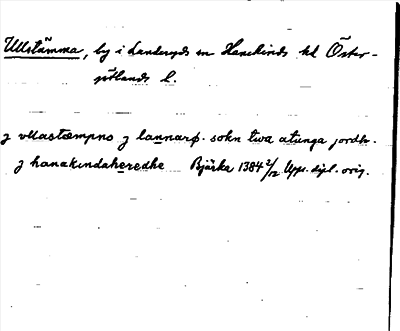 Ullstämma, by i Landeryds sn Hanekinds hd Öster-
götlands l.
j vllastæmpno j lannarø. sokn twa atunga jordh.
j hanakindaheredhe Bjärka 1384 2/12 Upps. dipl. orig.